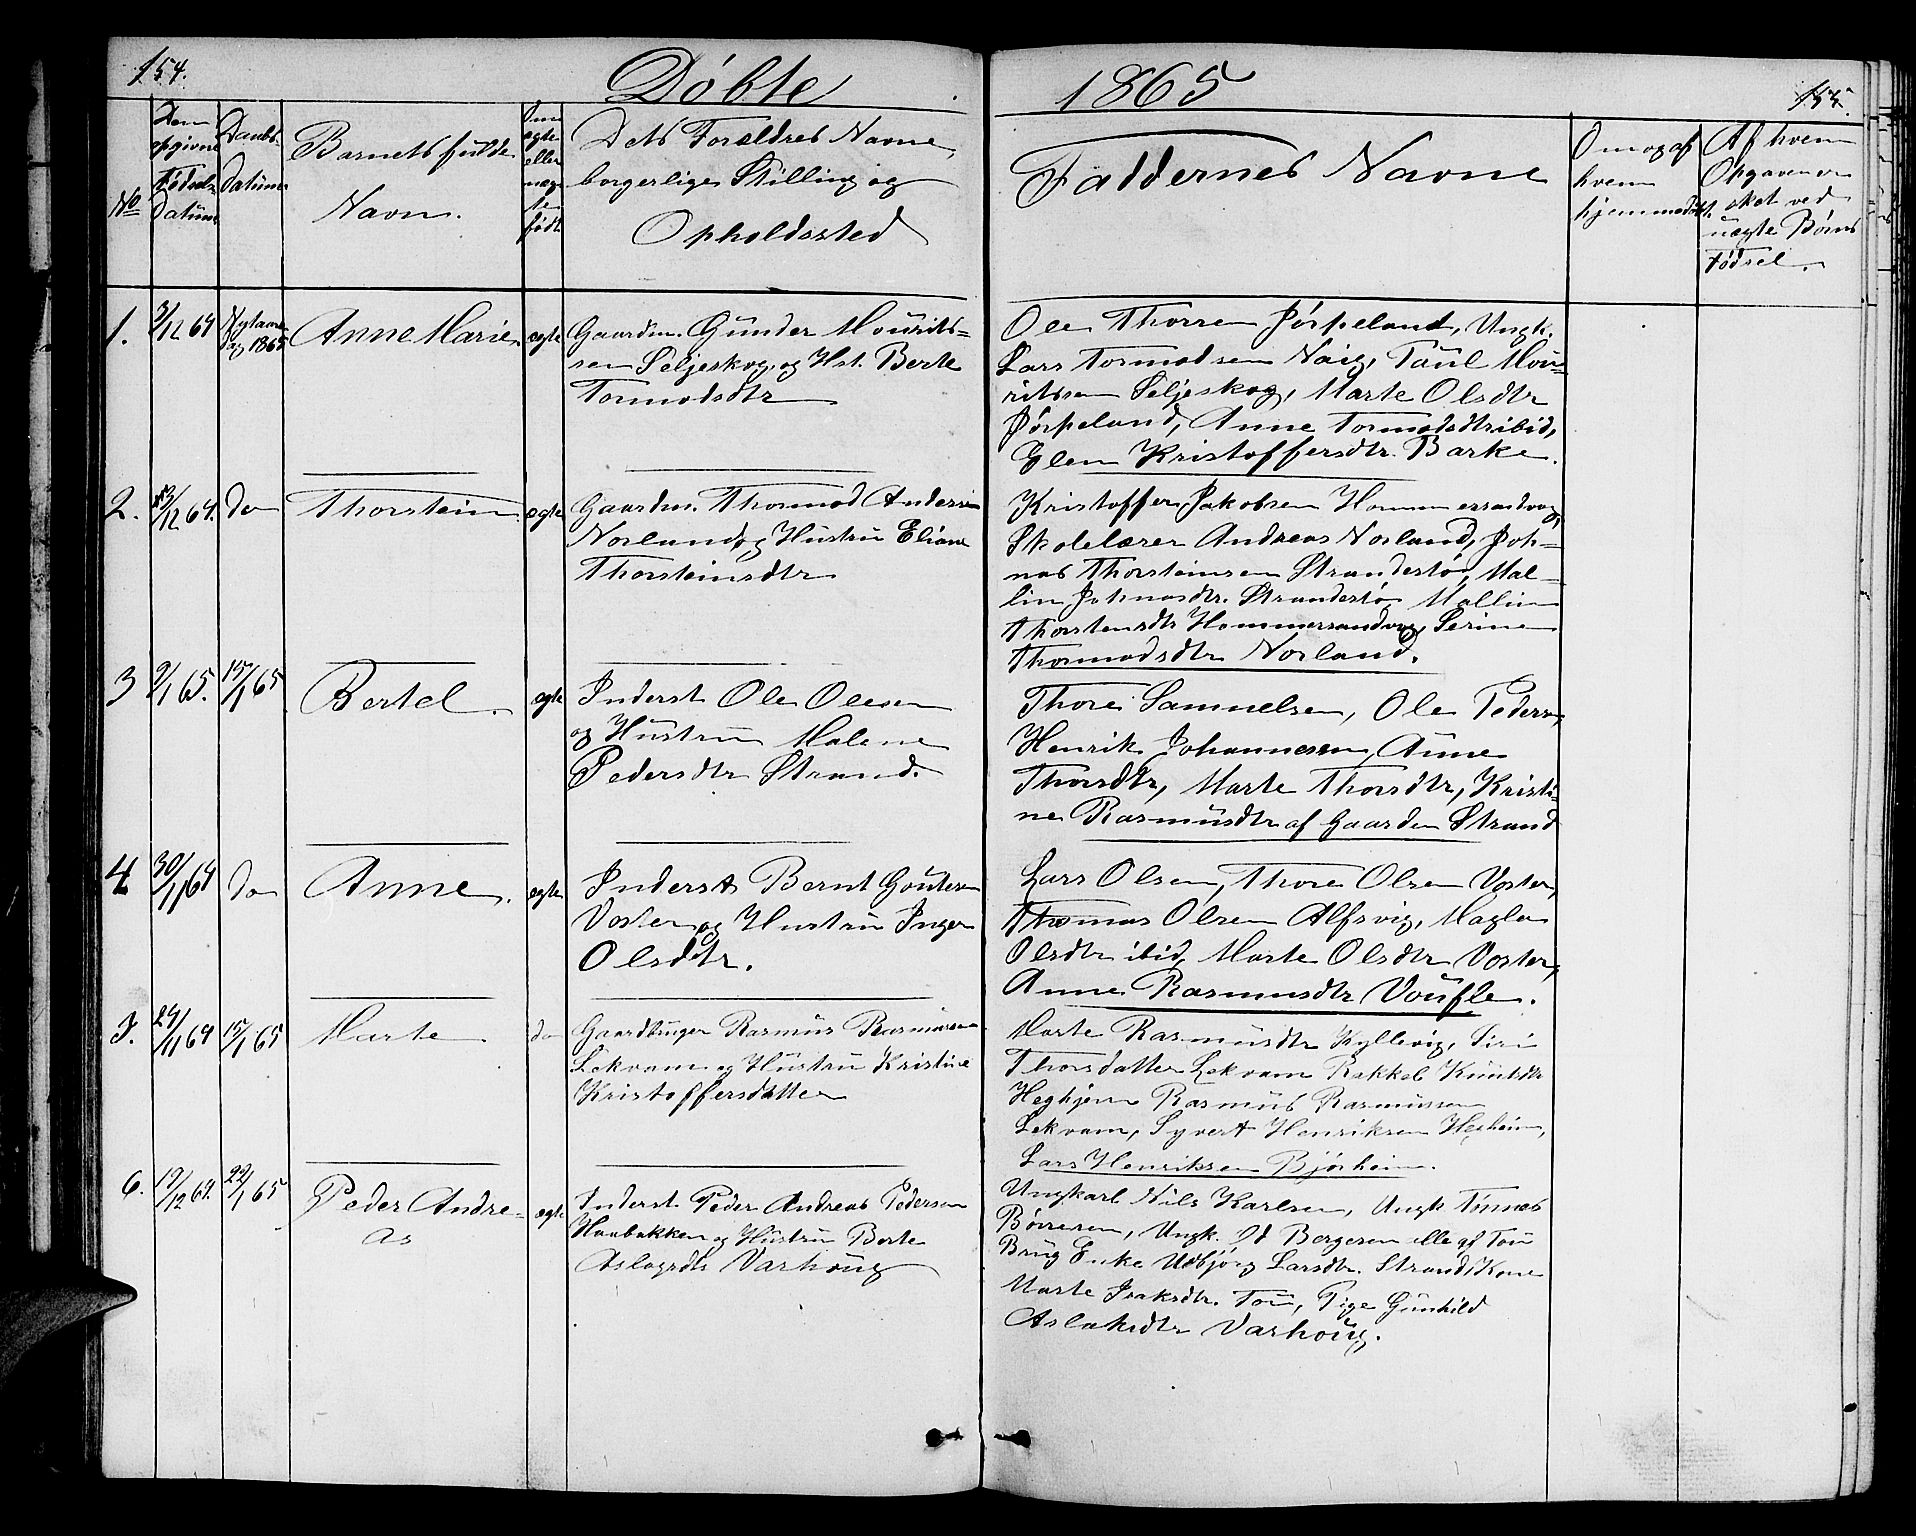 154.
Døbte
1865
155.
No
Den
opgivne
Fødsels
Datum
Daabs
Datum
Barnets fulde
Navn.
Om
ægte
eller
uæg
te
født
Dets Forældres Navne,
borgerlige Stilling og
Opholdssted
Faddernes Navne
Om og af
hvem
hjemmedøbt.
Af hvem
Opgaven er
sket ved
uægte Børns
Fødsel.
1.
3/12 64
Nytaars
dag 1865
Anne Marie
ægte
Gaardm. Gunder Mourits=
sen Seljeskog, og Hst. Berte
Tormodsdtr
Ole Thorsen Jørpeland, Ungk.
Lars Tormodsen Naig, Paul Mou=
ritsen Seljeskog, Marte Olsdtr
Jørpeland, Anne Tormodsdtr ibid,
Elen Kristoffersdtr. Barke.
2.
13/12 64.
do
Thorstein
ægte
Gaardm. Thormod Andersen
Norland og Hustru Eliane
Thorsteinsdtr
Kristoffer Jakobsen Hommersandvog,
Skolelærer Andreas Norland, Joh=
nas Thorsteinsen Strandestø, Mal=
lin Johnasdtr. Strandestø Mallin
Thorstensdtr Hommersandvog, Serine
Thormodsdtr Norland.
3
9/1 65.
15/1 65
Bertel.
ægte
Inderst Ole Olesen
og Hustru Malene
Pedersdtr Strand.
Thore Samuelsen, Ole Pedersen,
Henrik Johannesen, Anne
Thorsdtr, Marte Thorsdtr, Kristi=
ne Rasmusdtr af Gaarden Strand
4
30/11 64
do
Anne.
ægte
Inderst Bernt Goutesen
Voster og Hustru Inger
Olsdtr.
Lars Olsen, Thore Olsen Voster,
Thomas Olsen Alfsvig, Magla
Olsdtr ibid, Marte Olsdtr Voster,
Anne Rasmusdtr Voufle.
5.
24/11 64
15/1 65
Marte
do
Gaardbruger Rasmus Rasmussen
Lekvam og Hustru Kristine
Kristoffersdatter
Marte Rasmusdtr Kyllevig, Siri
Thorsdatter Lekvam Rakkel Knutsdtr
Heghjem Rasmus Rasmussen
Lekvam, Syvert Henriksen Heiheim,
Lars Henriksen Bjørheim.
6.
19/12 64.
22/1 65
Peder Andre=
as
ægte
Inderst Peder Andreas Pedersen
Haabakken og Hustru Berte
Aslagsdtr Varhoug
Ungkarl Nils Karlsen, Ungk Tønnes
Børresen, Ungk. Od Bergesen alle af Tou
Brug Enke Udbjørg Larsdtr. Strand, Kone
Marte Isaksdtr. Tou, Pige Gunhild
Aslaksdtr Varhoug.